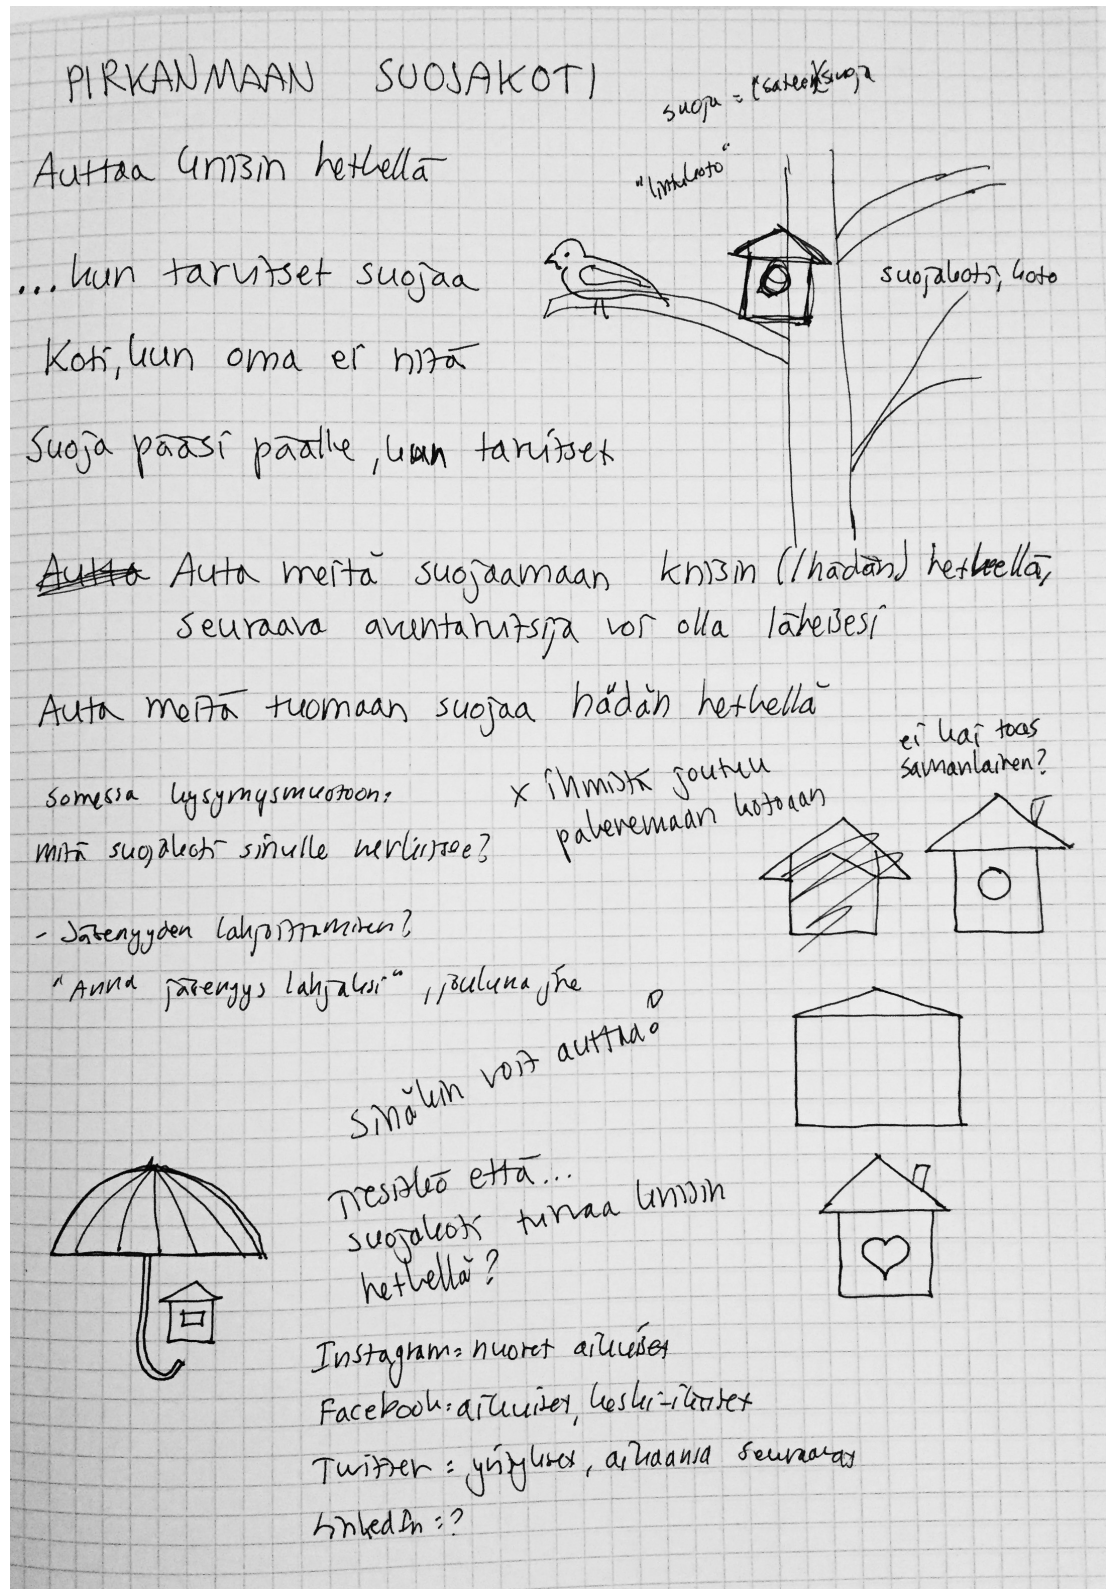 PIRKANMAAN SUOJAKOTI
suoja = (sateen)suoja
Auttaa kriisin hetkellä
"lintukoto"
...kun tarvitset suojaa
suojakoti, koto
Koti, kun oma ei riitä
Suoja pääsi päälle, kun tarvitset
Auta meitä suojaamaan kriisin (/hädän) hetkellä,
seuraava avuntarvitsija voi olla läheisesi
Auta meitä tuomaan suojaa hädän hetkellä
ei kai taas
samanlainen?
somessa kysymysmuotoon:
mitä suojakoti sinulle merkitsee?
x ihmistä joutuu
pakenemaan kotoaan
- Jäsenyyden lahjoittaminen?
"Anna jäsenyys lahjaksi", jouluna jne
Sinäkin voit auttaa!
Tiesitkö että...
suojakoti turvaa kriisin
hetkellä?
Instagram = nuoret aikuiset
Facebook: aikuiset, keski-ikäiset
Twitter = yritykset, aikaansa seuraavat
LinkedIn = ?